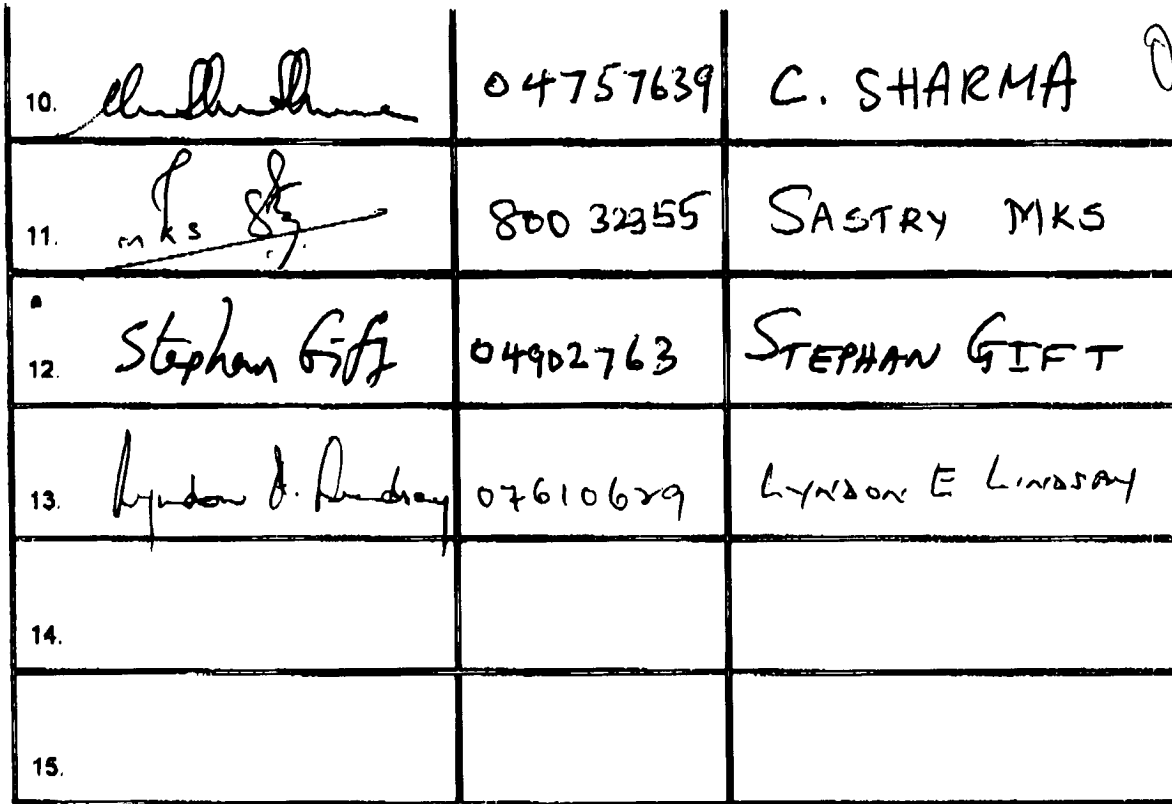 10. 04757639 C. SHARMA
11. mks 80032355 SASTRY MKS
12. Stephan Gift 04902763 STEPHAN GIFT
13. Lyndon E. Lindsay 07610629 LYNDON E LINDSAY
14.
15.